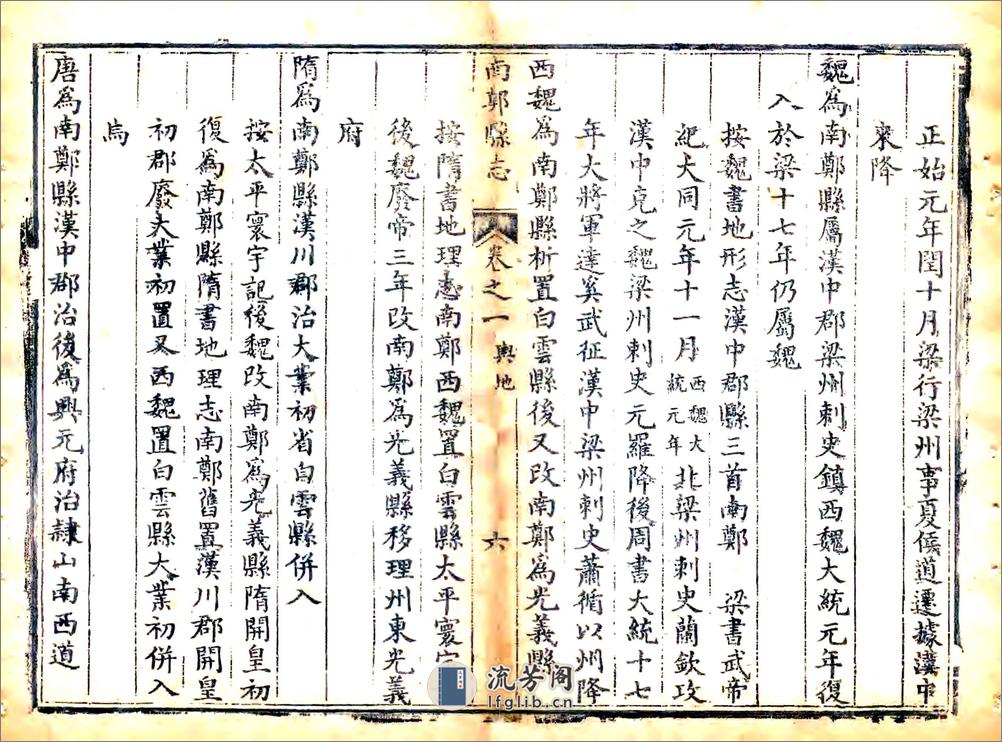 正始元年閏十月梁行梁州事夏侯道遷據漢中
來降
魏爲南鄭縣屬漢中郡梁州刺史鎮西魏大統元年復
入於梁十七年仍屬魏
按魏書地形志漢中郡縣三首南鄭 梁書武帝
紀大同元年十一月西魏大統元年北梁州刺史蘭欽攻
漢中克之魏梁州刺史元羅降後周書大統十七
年大將軍達奚武征漢中梁州刺史蕭循以州降
西魏爲南鄭縣析置白雲縣後又改南鄭爲光義縣
南鄭縣志 卷之一 輿地 六
按隋書地理志南鄭西魏置白雲縣太平寰宇
後魏廢帝三年改南鄭爲光義縣移理州東光義
府
隋爲南鄭縣漢川郡治大業初省白雲縣併入
按太平寰宇記後魏改南鄭爲光義縣隋開皇初
復爲南鄭縣隋書地理志南鄭舊置漢川郡開皇
初郡廢大業初置又西魏置白雲縣大業初併入
焉
唐爲南鄭縣漢中郡治後爲興元府治隸山南西道
流芳阁
lfglib.cn